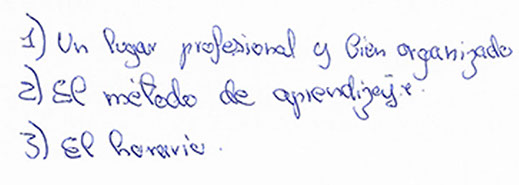 1) Un lugar profesional y bien organizado
2) El método de aprendizaje.
3) El horario.